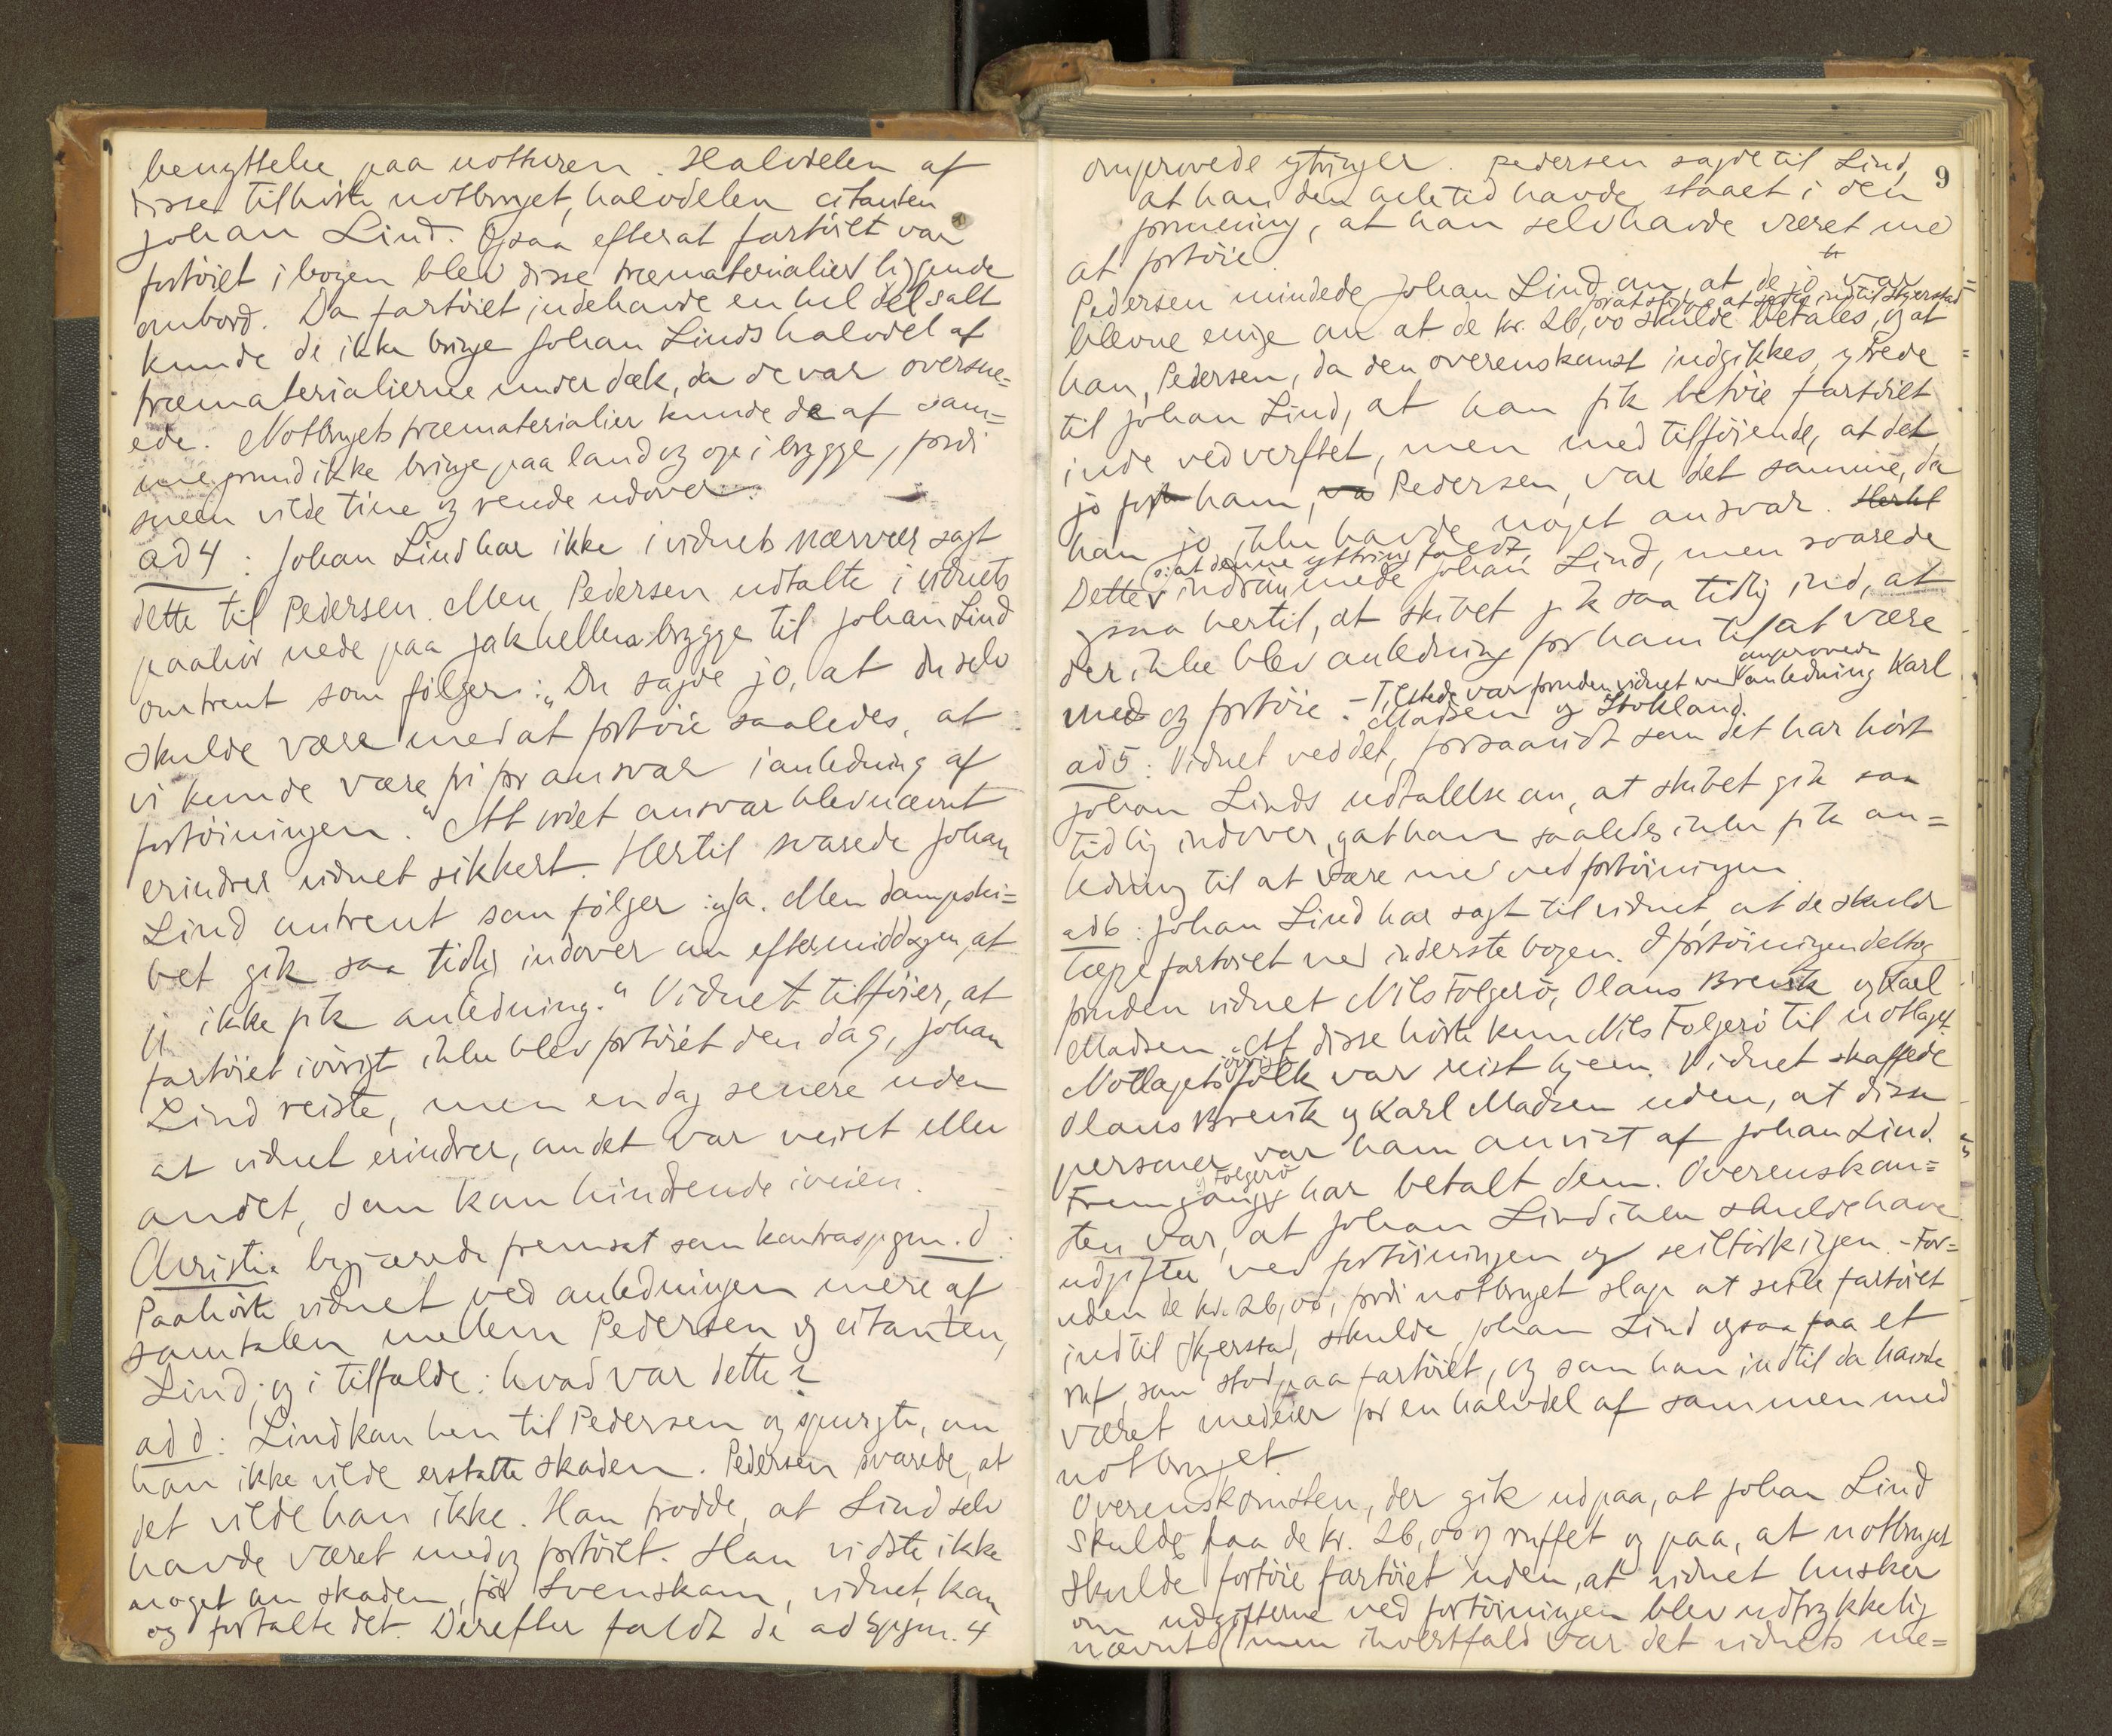 benyttelse paa notturen. Halvdelen af
disse tilhørte notbruget, halvdelen citanten
Johan Lind. Ogsaa efterat fartöiet var
fortöiet i bogen blev disse træmaterialier liggende
ombord. Da fartöiet indehavde en hel del salt
kunde de ikke bringe Johan Linds halvdel af
træmaterialierne under dæk, da de var oversne=
ede. Notbrugets træmaterialier kunde de af sam=
me grund ikke bringe paa land og op i brygge, fordi
sneen vilde tine og rende udover.
ad 4: Johan Lind har ikke i vidnets nærvær sagt
dette til Pedersen. Men Pedersen udtalte i vidnets
paahör nede paa Jakhellnes brygge til Johan Lind
omtrent som følger: "Du sagde jo, at du selv
skulde være med at fortöie saaledes, at
vi kunde være fri for ansvar i anledning af
fortöiningen." At ordet ansvar blev nævnt
erindrer vidnet sikkert. Hertil svarede Johan
Lind omtrent som følger: "Ja. Men dampski=
bet gik saa tidlig indover om eftermiddagen, at
jeg ikke fik anledning." Vidnet tilföier, at
fartöiet iövrigt ikke blev fortöiet den dag, Johan
Lind reiste, men en dag senere uden
at vidnet erindrer, om det var veiret eller
andet, som kom hindrende iveien.
Christie begjærede fremsat som kontraspgm. d:
Paahörte vidnet ved anledningen mere af
samtalen mellem Pedersen og citanten,
Lind; og i tilfælde: hvad var dette?
ad d: Lind kom hen til Pedersen og spurgte, om
han ikke vilde erstatte skaden. Pedersen svarede, at
det vilde han ikke. Han trodde, at Lind selv
havde været med og fortöiet. Han vidste ikke
noget om skaden, för Svenskam, vidnet, kom
og fortalte det. Derefter faldt de ad Spgm. 4
9
omprovede ytringer. Pedersen sagde til Lind,
at han den hele tid havde staaet i den
formening, at han selv havde været med
at fortöie.
Pedersen mindede Johan Lind om, at de jo var
for at slippe at seile ind til Skjerstad
blevne enige om at de kr. 26,00 skulde betales, og at
han, Pedersen, da den overenskomst indgikkes, ytrede
til Johan Lind, at han fik betöie fartöiet
inde ved verftet, men med tilföiende, at det
jo for ham, Pedersen, var det samme, da
han jo ikke havde noget ansvar.
ɔ: at denne yttring faldt,
Dette indrömmede Johan Lind, men svarede
ogsaa hertil, at skibet gik saa tidlig ind, at
der ikke blev anledning for ham til at være
med og fortöie. - Tilstede var foruden vidnet ved omprovede anledning Karl
Madsen og Stokland.
ad 5: Vidnet ved det, forsaavidt som det har hört
Johan Linds udtalelse om, at skibet gik saa
tidlig indover, og at han saaledes ikke fik an=
ledning til at være med ved fortöiningen.
ad 6: Johan Lind har sagt til vidnet, at de skulde
lægge fartöiet ved inderste bogen. I fortöiningen deltog
foruden vidnet Nils Folgerö, Olaus Brevik og Karl
Madsen. Af disse hörte kun Nils Folgerö til notlaget.
Notlagets övrige folk var reist hjem. Vidnet skaffede
Olaus Brevik og Karl Madsen uden, at disse
personer var ham anvist af Johan Lind.
Folgerö
har betalt dem. Overenskom=
sten var, at Johan Lind ikke skulde have
udgifter ved fortöiningen og seiltörkingen. - For=
uden de kr. 26,00, fordi notbruget slap at seile fartöiet
ind til Skjerstad, skulde Johan Lind ogsaa faa et
ruf, som stod paa fartöiet, og som han indtil da havde
været medeier for en halvdel af sammen med
notbruget.
Overenskomsten, der gik ud paa, at Johan Lind
skulde faa de kr. 26,00 og ruffet og paa, at notbruget
skulde fortöie fartöiet uden, at vidnet husker
om udgifterne ved fortöiningen blev udtrykkelig
nævnt (men ihvertfald var det vidnets me=